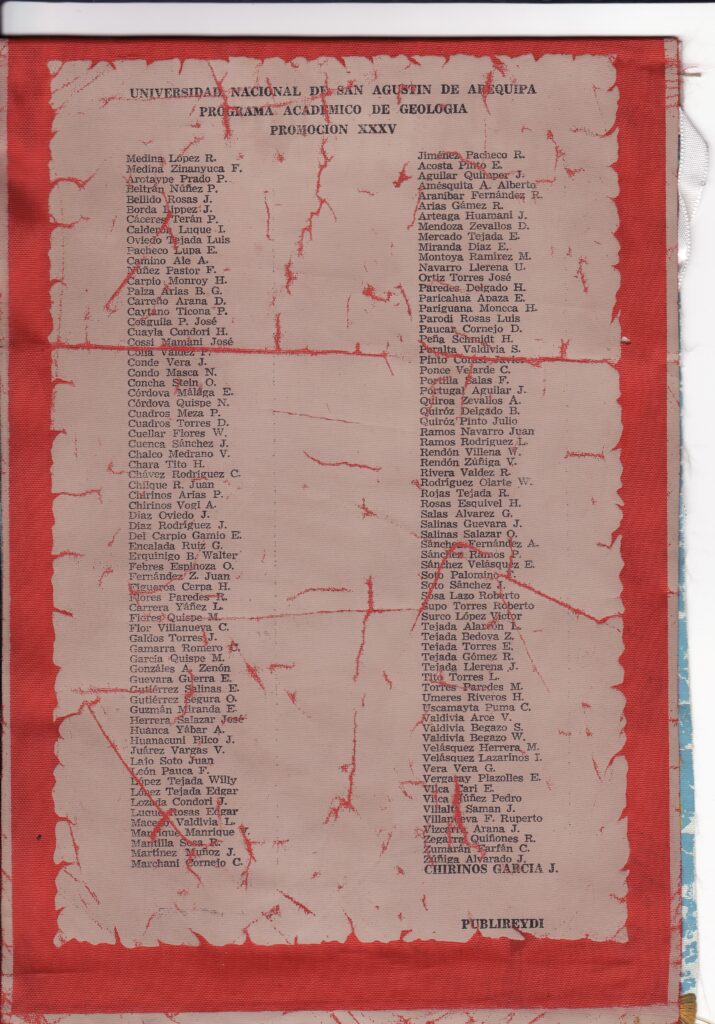 UNIVERSIDAD NACIONAL DE SAN AGUSTIN DE AREQUIPA
PROGRAMA ACADEMICO DE GEOLOGIA
PROMOCION XXXV
Medina López R.
Medina Zinanyuca F.
Arotaype Prado P.
Beltrán Núñez P.
Bellido Rosas J.
Borda Lippez J.
Cáceres Terán P.
Calderón Luque I.
Oviedo Tejada Luis
Pacheco Lupa E.
Camino Ale A.
Núñez Pastor F.
Carpio Monroy H.
Palza Arias B. G.
Carreño Arana D.
Caytano Ticona P.
Coaguila P. José
Cuayla Condori H.
Cossi Mamani José
Colla Valdez P.
Conde Vera J.
Condo Masca N.
Concha Stein O.
Córdova Málaga E.
Córdova Quispe N.
Cuadros Meza P.
Cuadros Torres D.
Cuellar Flores W.
Cuenca Sánchez J.
Chalco Medrano V.
Chara Tito H.
Chávez Rodríguez C.
Chilque R. Juan
Chirinos Arias P.
Chirinos Vogl A.
Díaz Oviedo J.
Díaz Rodríguez J.
Del Carpio Gamio E.
Encalada Ruiz G.
Erquinigo B. Walter
Febres Espinoza O.
Fernández Z. Juan
Figueroa Cerpa H.
Flores Paredes R.
Carrera Yáñez L.
Flores Quispe M.
Flor Villanueva C.
Galdos Torres J.
Gamarra Romero C.
García Quispe M.
Gonzáles A. Zenón
Guevara Guerra E.
Gutiérrez Salinas E.
Gutiérrez Segura O.
Guzmán Miranda E.
Herrera Salazar José
Huanca Yábar A.
Huanacuni Pilco J.
Juárez Vargas V.
Lajo Soto Juan
León Pauca F.
López Tejada Willy
López Tejada Edgar
Lozada Condori J.
Luque Rosas Edgar
Macedo Valdivia L.
Manrique Manrique V.
Mantilla Sosa R.
Martínez Muñoz J.
Marchani Cornejo C.
Jiménez Pacheco R.
Acosta Pinto E.
Aguilar Quimper J.
Amésquita A. Alberto
Araníbar Fernández R.
Arias Gámez R.
Arteaga Huamaní J.
Mendoza Zevallos D.
Mercado Tejada E.
Miranda Díaz E.
Montoya Ramírez M.
Navarro Llerena U.
Ortiz Torres José
Paredes Delgado H.
Paricahua Apaza E.
Pariguana Moncca H.
Parodi Rosas Luis
Paucar Cornejo D.
Peña Schmidt H.
Peralta Valdivia S.
Pinto Corasi Javier
Ponce Velarde C.
Portilla Salas F.
Portugal Aguilar J.
Quiroa Zevallos A.
Quiróz Delgado B.
Quiróz Pinto Julio
Ramos Navarro Juan
Ramos Rodríguez L.
Rendón Villena W.
Rendón Zúñiga V.
Rivera Valdez R.
Rodríguez Olarte W.
Rojas Tejada R.
Rosas Esquivel H.
Salas Alvarez G.
Salinas Guevara J.
Salinas Salazar O.
Sánchez Fernández A.
Sánchez Ramos P.
Sánchez Velásquez E.
Soto Palomino
Soto Sánchez J.
Sosa Lazo Roberto
Supo Torres Roberto
Surco López Víctor
Tejada Alarcón L.
Tejada Bedoya Z.
Tejada Torres E.
Tejada Gómez R.
Tejada Llerena J.
Tito Torres L.
Torres Paredes M.
Umeres Riveros H.
Uscamayta Puma C.
Valdivia Arce V.
Valdivia Begazo S.
Valdivia Begazo W.
Velásquez Herrera M.
Velásquez Lazarinos I.
Vera Vera G.
Vergaray Plazolles E.
Vilca Cari E.
Vilca Núñez Pedro
Villalta Saman J.
Villanueva F. Ruperto
Vizcarra Arana J.
Zegarra Quiñones R.
Zumarán Farfán C.
Zúñiga Alvarado J.
CHIRINOS GARCIA J.
PUBLIREYDI